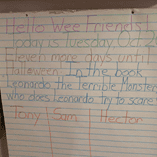 Hello Wee Friends!
Today is Tuesday Oct. 20
Eleven more days until
Halloween. In the book
Leonardo the Terrible Monster
who does Leonardo try to scare
Tony Sam Hector